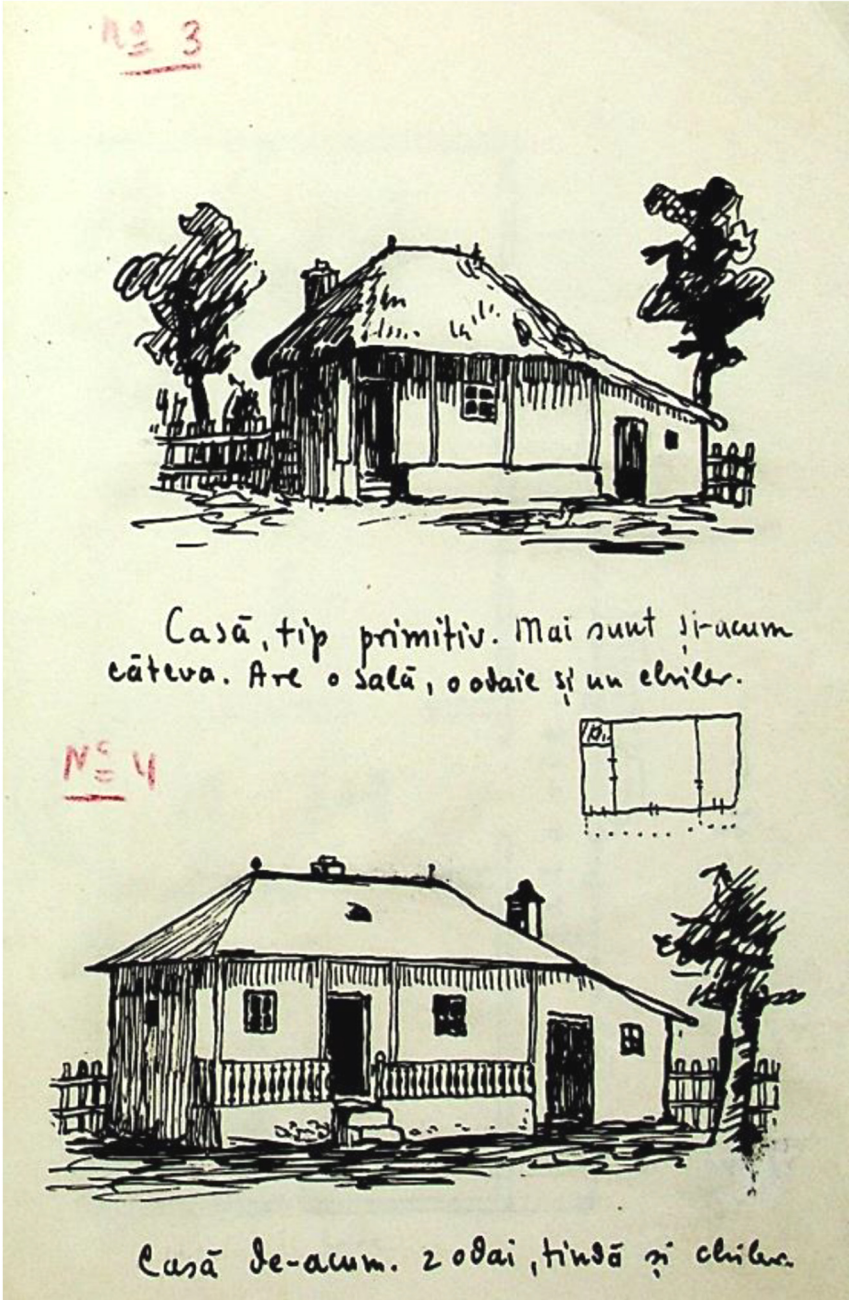 Nº 3
Casă, tip primitiv. Mai sunt și-acum
câteva. Are o sală, o odaie și un chiler.
Nº 4
Casă de-acum. 2 odăi, tindă și chiler.